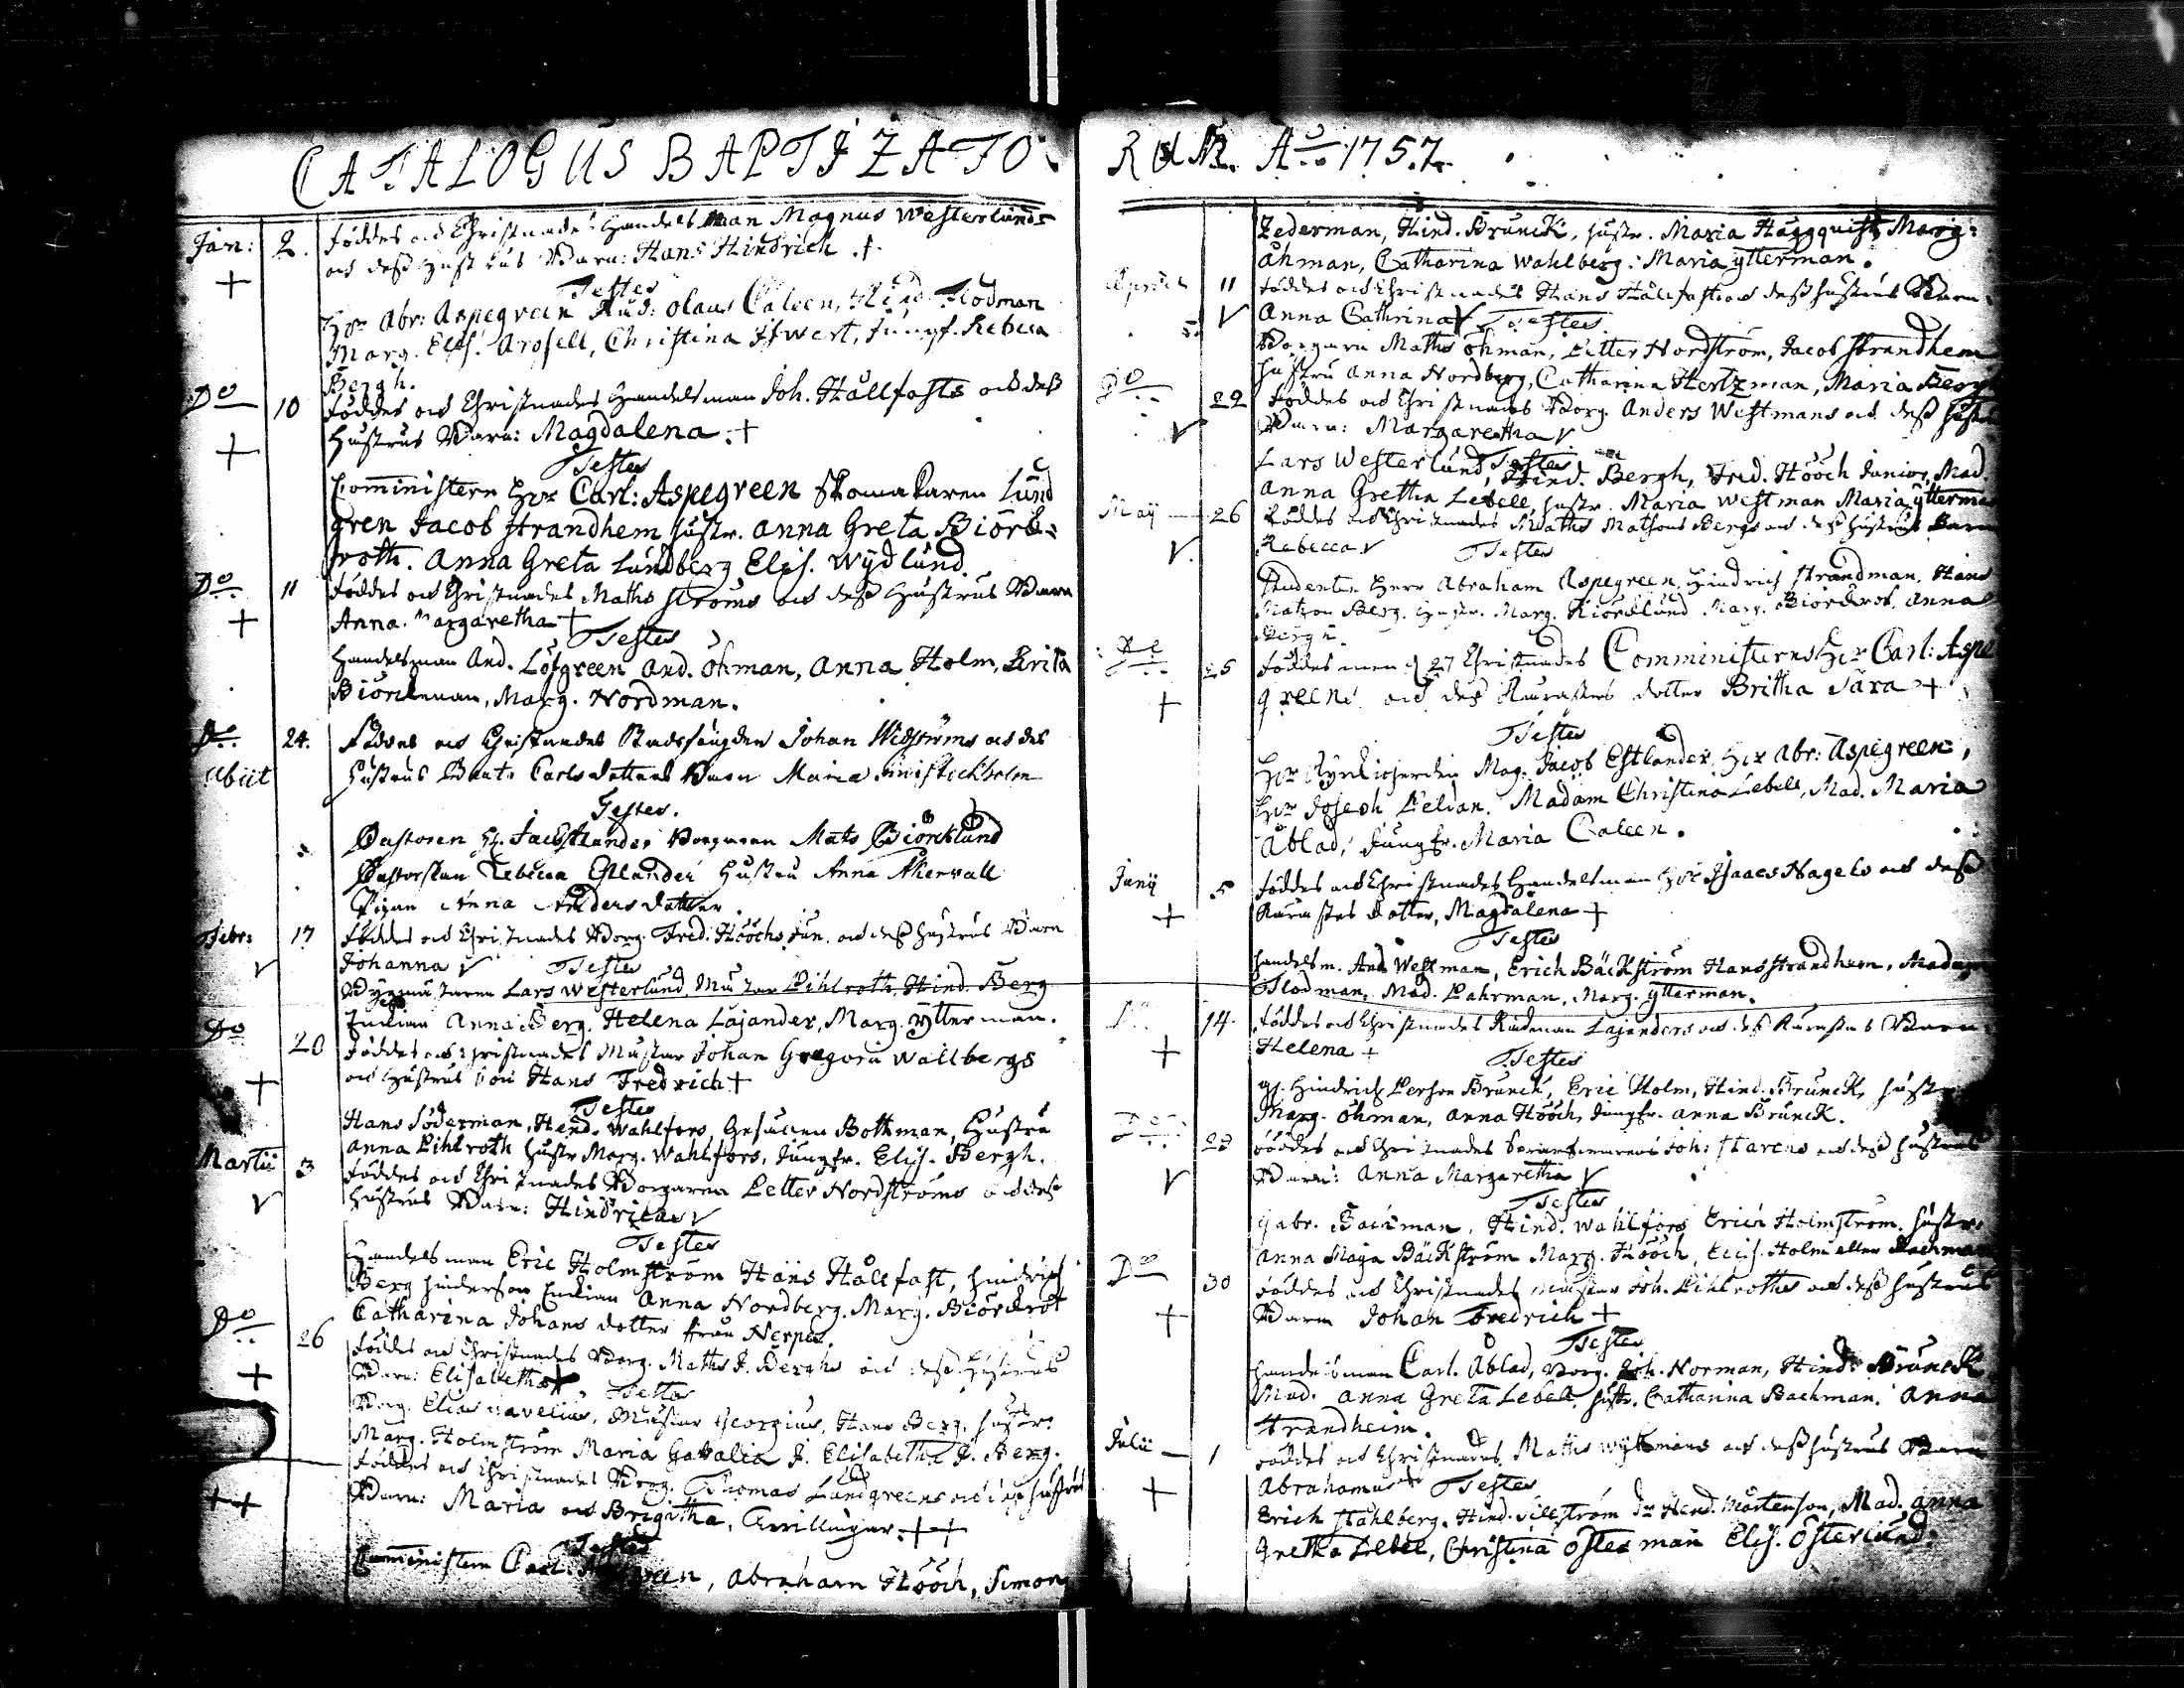 CATALOGUS BAPTIZATO
Jan: 2. föddes och Christnades Handelsman Magnus Westerlunds
och dess hustrus Barn: Hans Hindrich +
Testes
Hr Abr: Aspegreen Stud: Olaus Caleen, Hind. Flodman
Marg. Elis. Arosell, Christina Jungf. Rebeca
Bergh.
Do 10 föddes och Christnades Handelsman Joh. Hållfasts och dess
Hustrus Barn: Magdalena +
Testes
Comministern Hr Carl: Aspegreen Skomakaren Lund
gren Jacob Strandhem hustr. Anna Greta Biörk=
roth. Anna Greta Lundberg Elis. Wydlund
Do 11 föddes och Christnades Maths Ströms och dess Hustrus Barn
Anna Margaretha +
Testes
Handelsman And. Löfgreen And. Öhman, Anna Holm, Brita
Biörckman, Marg. Nordman.
Do 24. Föddes och Christnades Stadsfougden Johan Widströms och des
Abiit Hustrus Carlsdotters Barn Maria
Testes.
Pastoren H. Jac Estlander Borgaren Mats Biörcklund
Pastorskan Rebecca Estlander Hustru Anna Åkerwall
Pigan Anna Andersdotter
Febr: 17 föddes och Christnades Borg. Fred. Hööchs Jun. och dess Hustrus Barn
Johanna V Testes
Lars Westerlund, Pihlroth, Hind. Berg
Anna Berg. Helena Lajander, Marg. Ytterman.
Do 20 föddes och Christnades Mustar Johan Gregorii Wallbergs
och Hustrus Son Hans Fredrich +
Testes
Hans Söderman, Hend. Wahlfors, Gesällen Bothman, Hustru
Anna Pihlroth hustr Marg. Wahlfors, Jungfr. Elis. Bergh.
Martii 3 föddes och Christnades Borgaren Petter Nordströms och dess
V Hustrus Barn: Hindrica V
Testes
Handelsman Eric Holmström Hans Hållfast, Hindrich
Berg Hinderson Enckian Anna Nordberg. Marg. Biörckrot
Catharina Johansdotter från Nerpes.
Do 26 föddes och Christnades Borg. Maths J. Berghs och dess Hustrus
+ Barn: Elisabetha + Testes
Borg. Elias Mustar Georgius, Hans Berg, hustr.
Marg. Holmström Maria J. Elisabetha J. Berg.
föddes och Christnades Borg. Thomas Lundgreens och dess hustrus
++ Barn: Maria och Brigitha, Tvillingar. ++
Testes
Comministern Carl. Abraham Hööch, Simon
RUM. Ao 1757.
Zederman, Hind. Brunck, hustr. Maria Häggquist, Marg:
Åhman, Catharina Wahlberg. Maria Ytterman.
Aprilis 11 föddes och Christnades Hans Hållfasts och dess hustrus Barn
V Anna Cathrina V Testes
Borgaren Maths Öhman, Petter Nordström, Jacob Strandhem
hustru Anna Nordberg, Catharina Hertzman, Maria Berg
Do 22 föddes och Christnades Borg. Anders Westmans och dess hustrus
V Barn: Margaretha V
Testes
Lars Westerlund, Hind. Bergh, Fred. Hööch Junior, Mad.
Anna Gretha Lebell, hustr. Maria Westman Maria Ytterman
Maij 26 föddes och Christnades Maths Matsons Bergs och dess hustrus Barn
V Rebecca V Testes
Studenten Herr Abraham Aspegreen, Hindrich Strandman, Hans
Matzon Berg. Hustr. Marg. Biörcklund Marg. Biörckrot, Anna
Berg
25 föddes men d 27 Christnades Comministerns Hr Carl: Aspe
+ greens och des Kärastes dotter Britha Sara +
Testes
Hr Kyrckioherden Mag. Jacob Estlander, Hr Abr: Aspegreen,
Hr Joseph Peldan. Madam Christina Lebell, Mad. Maria
Åblad, Jungfr. Maria Caleen.
Junij 5 föddes och Christnades Handelsman Hr Isaacs Nagels och dess
+ Kärastes dotter, Magdalena +
Testes
handelsm. And Westman, Erich Bäckström Hans Strandhem, Madam
Flodman, Mad. Pahrman, Marg. Ytterman.
14. föddes och Christnades Rådman Lajanders och dess Kärestas Barn
+ Helena + Testes
Hindrich Person Brunck, Eric Holm, Hind. Brunck, hustr
Marg. Öhman, Anna Hööch, Jungfr. Anna Brunck.
Do 28 föddes och Christnades Joh: Starens och dess hustrus
V Barn: Anna Margaretha V
Testes
Gabr. Backman, Hind. Wahlfors Erich Holmström. hustr.
Anna Maja Bäckström Marg. Hööch, Elis. Holm eller Backman
Do 30 föddes och Christnades Mustar Joh. Pihlroths och dess hustrus
+ Barn Johan Fredrich +
Testes
handelsman Carl. Åblad, Borg. Joh. Norman, Hind. Brunck
Mad. Anna Greta Lebell, hustr. Catharina Backman. Anna
Strandheim.
Julii 1 föddes och Christnades Maths Wykmans och dess hustrus Barn
+ Abrahamus Testes
Erich Stahlberg, Hind. Sillström Hend. Mårtenson, Mad. Anna
Gretha Lebell, Christina Österman Elis. Österlund.